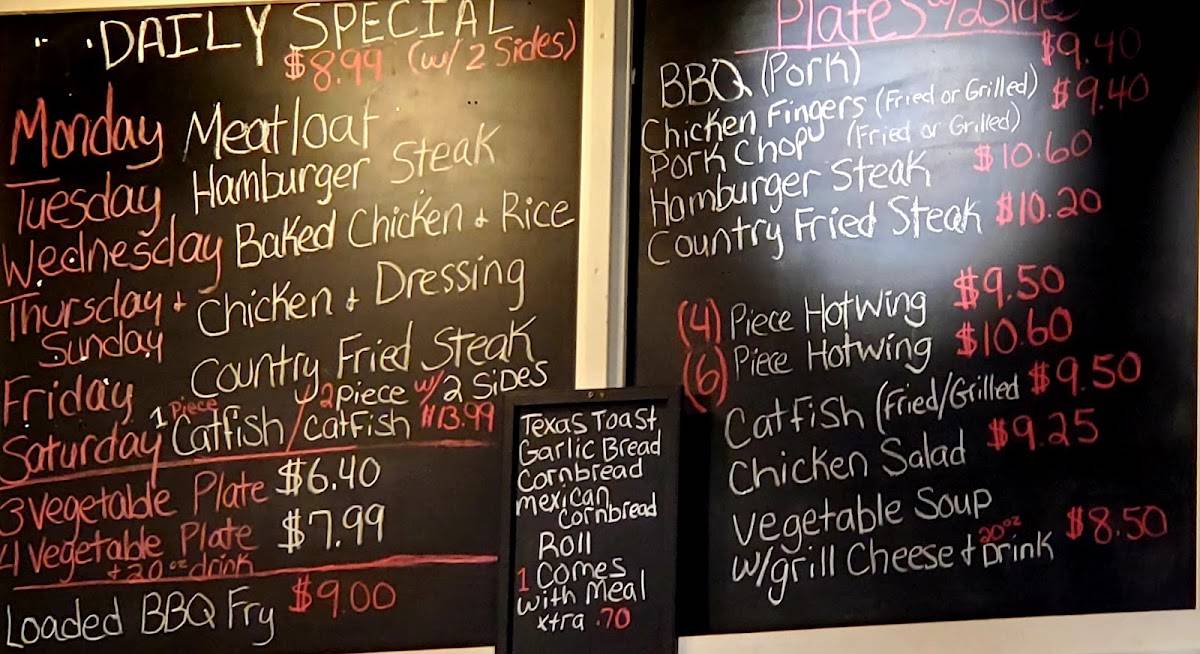 DAILY SPECIAL
$8.99 (w/ 2 Sides)
Monday Meatloaf
Tuesday Hamburger Steak
Wednesday Baked Chicken + Rice
Thursday + Sunday Chicken + Dressing
Friday Country Fried Steak
Saturday 1 Piece Catfish / 2 piece w/ 2 Sides catfish $13.99
3 Vegetable Plate $6.40
4 Vegetable Plate $7.99
+ 20 oz drink
Loaded BBQ Fry $9.00
Texas Toast
Garlic Bread
Cornbread
mexican
Cornbread
Roll
1 Comes
with Meal
xtra .70
Plates w/2 Side
BBQ (Pork) $9.40
Chicken Fingers (Fried or Grilled) $9.40
Pork Chop (Fried or Grilled)
Hamburger Steak $10.60
Country Fried Steak $10.20
(4) Piece HotWing $9.50
(6) Piece HotWing $10.60
Catfish (Fried/Grilled $9.50
Chicken Salad $9.25
Vegetable Soup
w/grill Cheese + 20 oz Drink $8.50